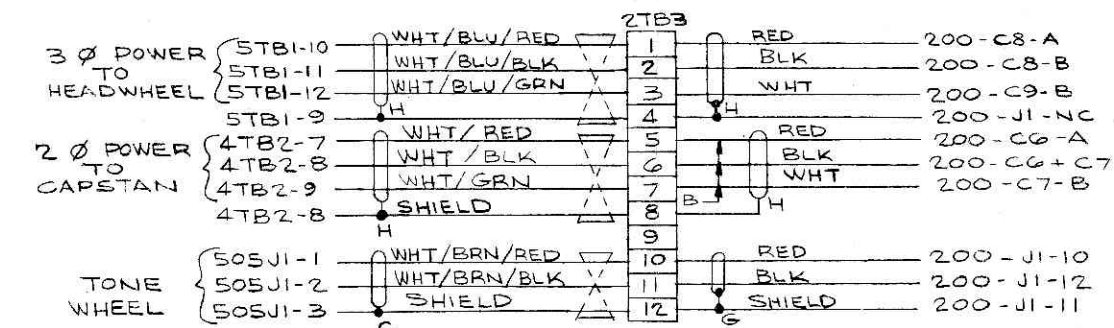 2TB3
3 Ø POWER TO HEADWHEEL
5TB1-10 WHT/BLU/RED 1 RED 200-C8-A
5TB1-11 WHT/BLU/BLK 2 BLK 200-C8-B
5TB1-12 WHT/BLU/GRN 3 WHT 200-C9-B
H H
5TB1-9 4 200-J1-NC
2 Ø POWER TO CAPSTAN
4TB2-7 WHT/RED 5 RED 200-C6-A
4TB2-8 WHT/BLK 6 BLK 200-C6+C7
4TB2-9 WHT/GRN 7 WHT 200-C7-B
B
4TB2-8 SHIELD 8 H
H
9
TONE WHEEL
505J1-1 WHT/BRN/RED 10 RED 200-J1-10
505J1-2 WHT/BRN/BLK 11 BLK 200-J1-12
505J1-3 SHIELD 12 SHIELD 200-J1-11
G